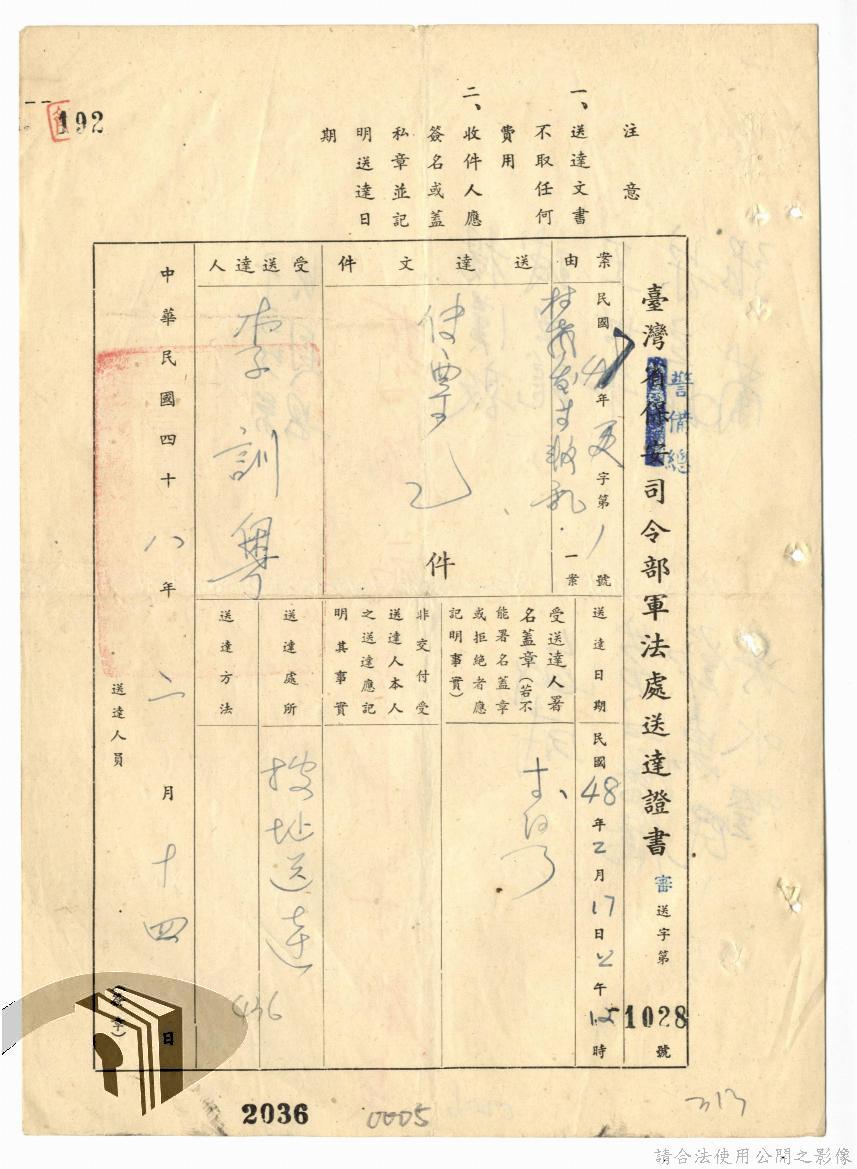 192
注意
一、送達文書
不取任何
費用
二、收件人應
簽名或蓋
私章並記
明送達日
期
臺灣省保安司令部軍法處送達證書
警備總
審送字第1028號
案由
民國47年更字第1號
叛亂一案
送達文件
傳票乙件
受送達人
李訓粵
送達日期
民國48年2月17日 午 時
受送達人署
名蓋章(若不
能署名蓋章
或拒絕者應
記明事實)
非交付受
送達人本人
之送達應記
明其事實
送達處所
按址送達
送達方法
436
中華民國四十八年二月十四日
送達人員
(蓋章)
2036
0005
313
請合法使用公開之影像